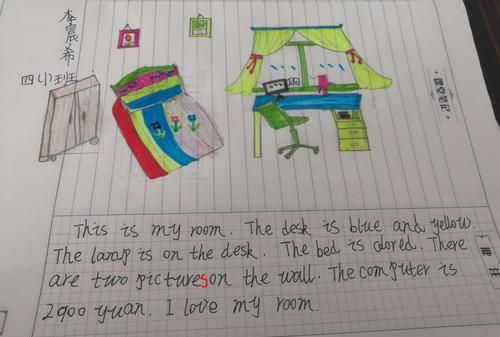 李宸希
四(1)班
课堂笔记
This is my room. The desk is blue and yellow.
The lamp is on the desk. The bed is colored. There
are two pictures on the wall. The computer is
2900 yuan. I love my room.